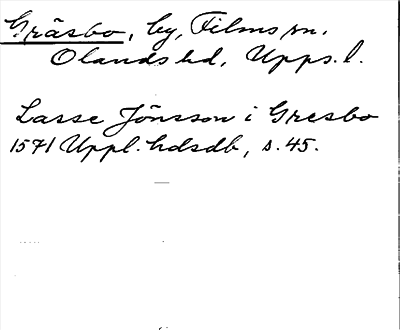 Gräsbo, by, Films sn.
Olands hd, Upps. l.
Lasse Jönsson i Gresbo
1571 Uppl. hdsdb, s. 45.